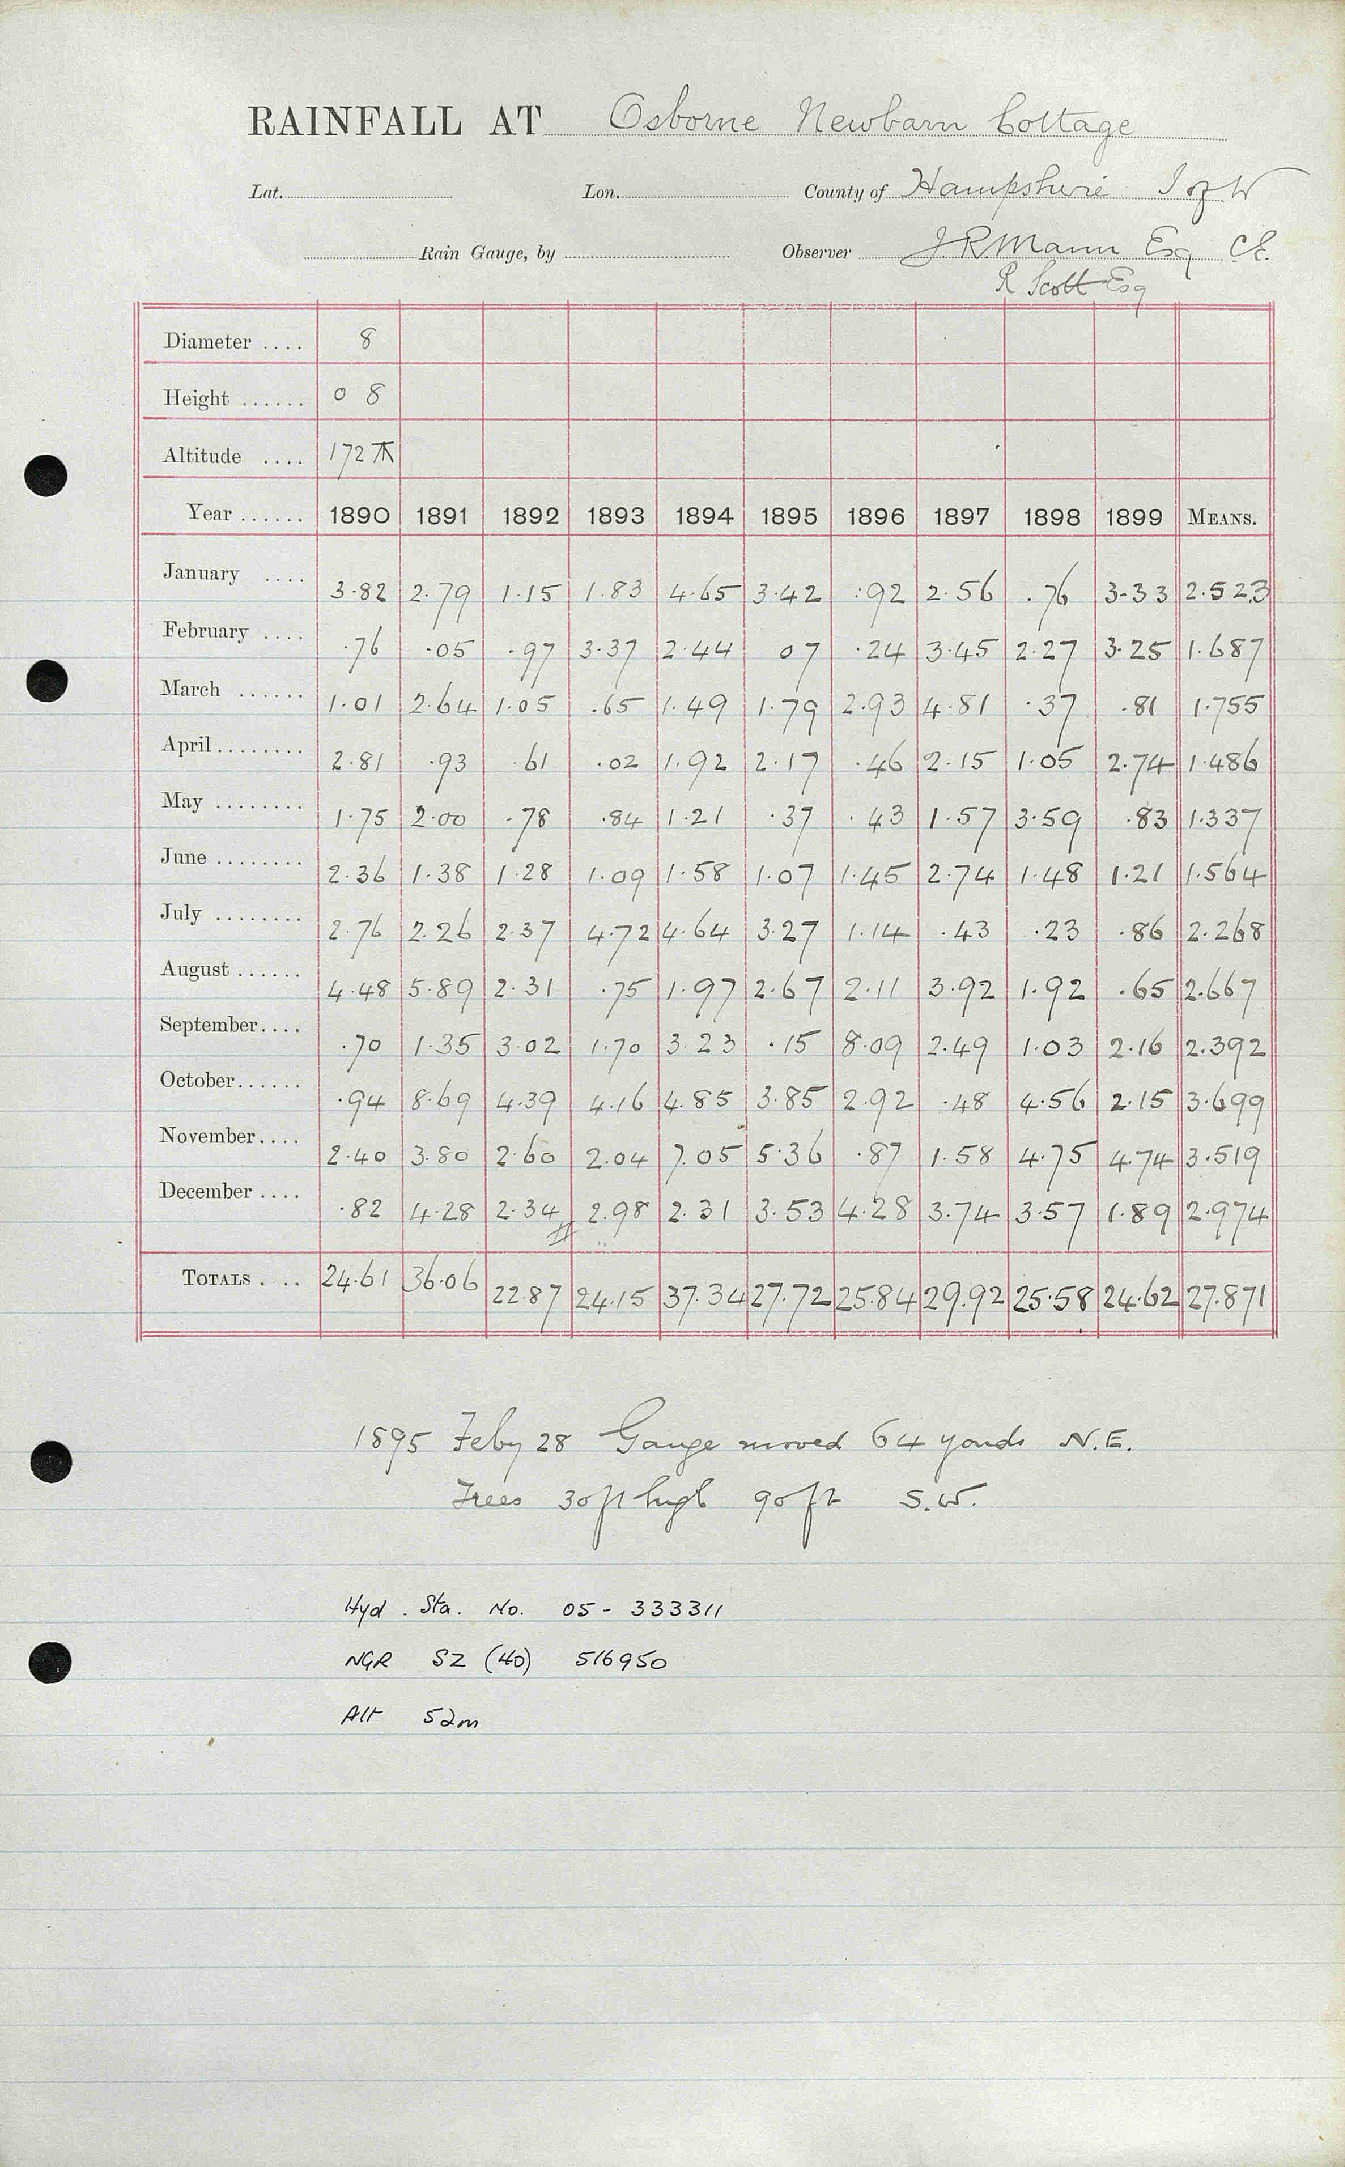 RAINFALL AT Osborne Newbarn Cottage
Lat. Lon. County of Hampshire I of W
Rain Gauge, by Observer J. R Mann Esq C.E.
R Scott Esq
Diameter .... 8
Height ...... 0 8
Altitude .... 172
Year ...... 1890 1891 1892 1893 1894 1895 1896 1897 1898 1899 MEANS.
January .... 3.82 2.79 1.15 1.83 4.65 3.42 .92 2.56 .76 3.33 2.523
February .... .76 .05 .97 3.37 2.44 07 .24 3.45 2.27 3.25 1.687
March ...... 1.01 2.64 1.05 .65 1.49 1.79 2.93 4.81 .37 .81 1.755
April ........ 2.81 .93 .61 .02 1.92 2.17 .46 2.15 1.05 2.74 1.486
May ........ 1.75 2.00 .78 .84 1.21 .37 .43 1.57 3.59 .83 1.337
June ........ 2.36 1.38 1.28 1.09 1.58 1.07 1.45 2.74 1.48 1.21 1.564
July ........ 2.76 2.26 2.37 4.72 4.64 3.27 1.14 .43 .23 .86 2.268
August ...... 4.48 5.89 2.31 .75 1.97 2.67 2.11 3.92 1.92 .65 2.667
September.... .70 1.35 3.02 1.70 3.23 .15 8.09 2.49 1.03 2.16 2.392
October...... .94 8.69 4.39 4.16 4.85 3.85 2.92 .48 4.56 2.15 3.699
November.... 2.40 3.80 2.60 2.04 7.05 5.36 .87 1.58 4.75 4.74 3.519
December .... .82 4.28 2.34 2.98 2.31 3.53 4.28 3.74 3.57 1.89 2.974
TOTALS .... 24.61 36.06 22.87 24.15 37.34 27.72 25.84 29.92 25.58 24.62 27.871
1895 Feby 28 Gauge moved 64 yards N.E.
Trees 30ft high 90ft S.W.
Hyd. Sta. No. 05 - 333311
NGR SZ (40) 516950
Alt 52m